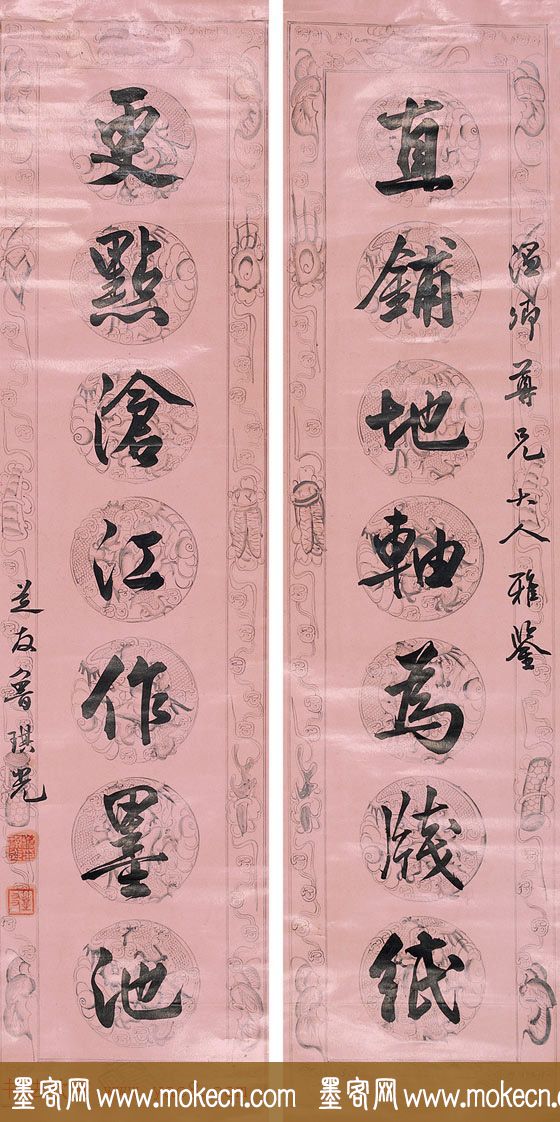 温卿尊兄大人雅鉴
直鋪地軸為牋紙
更點滄江作墨池
芝友魯琪光
墨客网 www.mokecn.com 墨客网 www.mokecn.com